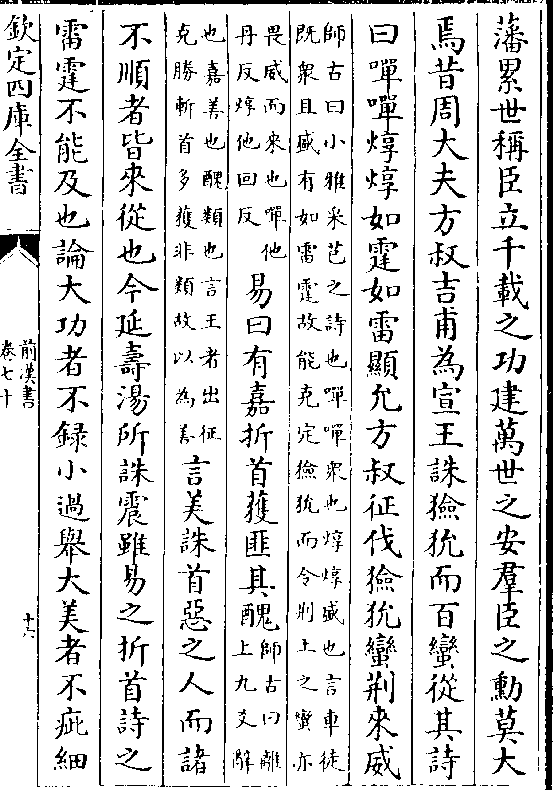 藩累世稱臣立千載之功建萬世之安羣臣之勳莫大
焉昔周大夫方叔吉甫為宣王誅獫狁而百蠻從其詩
曰嘽嘽焞焞如霆如雷顯允方叔征伐獫狁蠻荆來威
師古曰小雅采芑之詩也嘽嘽衆也焞焞盛也言車徒
既衆且盛有如雷霆故能克定獫狁而令荆土之蠻亦
畏威而來也嘽他
丹反焞他回反
易曰有嘉折首獲匪其醜
師古曰離
上九爻辭
也嘉善也醜類也言王者出征
克勝斬首多獲非類故以為善
言美誅首惡之人而諸
不順者皆來從也今延壽湯所誅震雖易之折首詩之
雷霆不能及也論大功者不録小過舉大美者不疵細
欽定四庫全書
前漢書
卷七十
十六